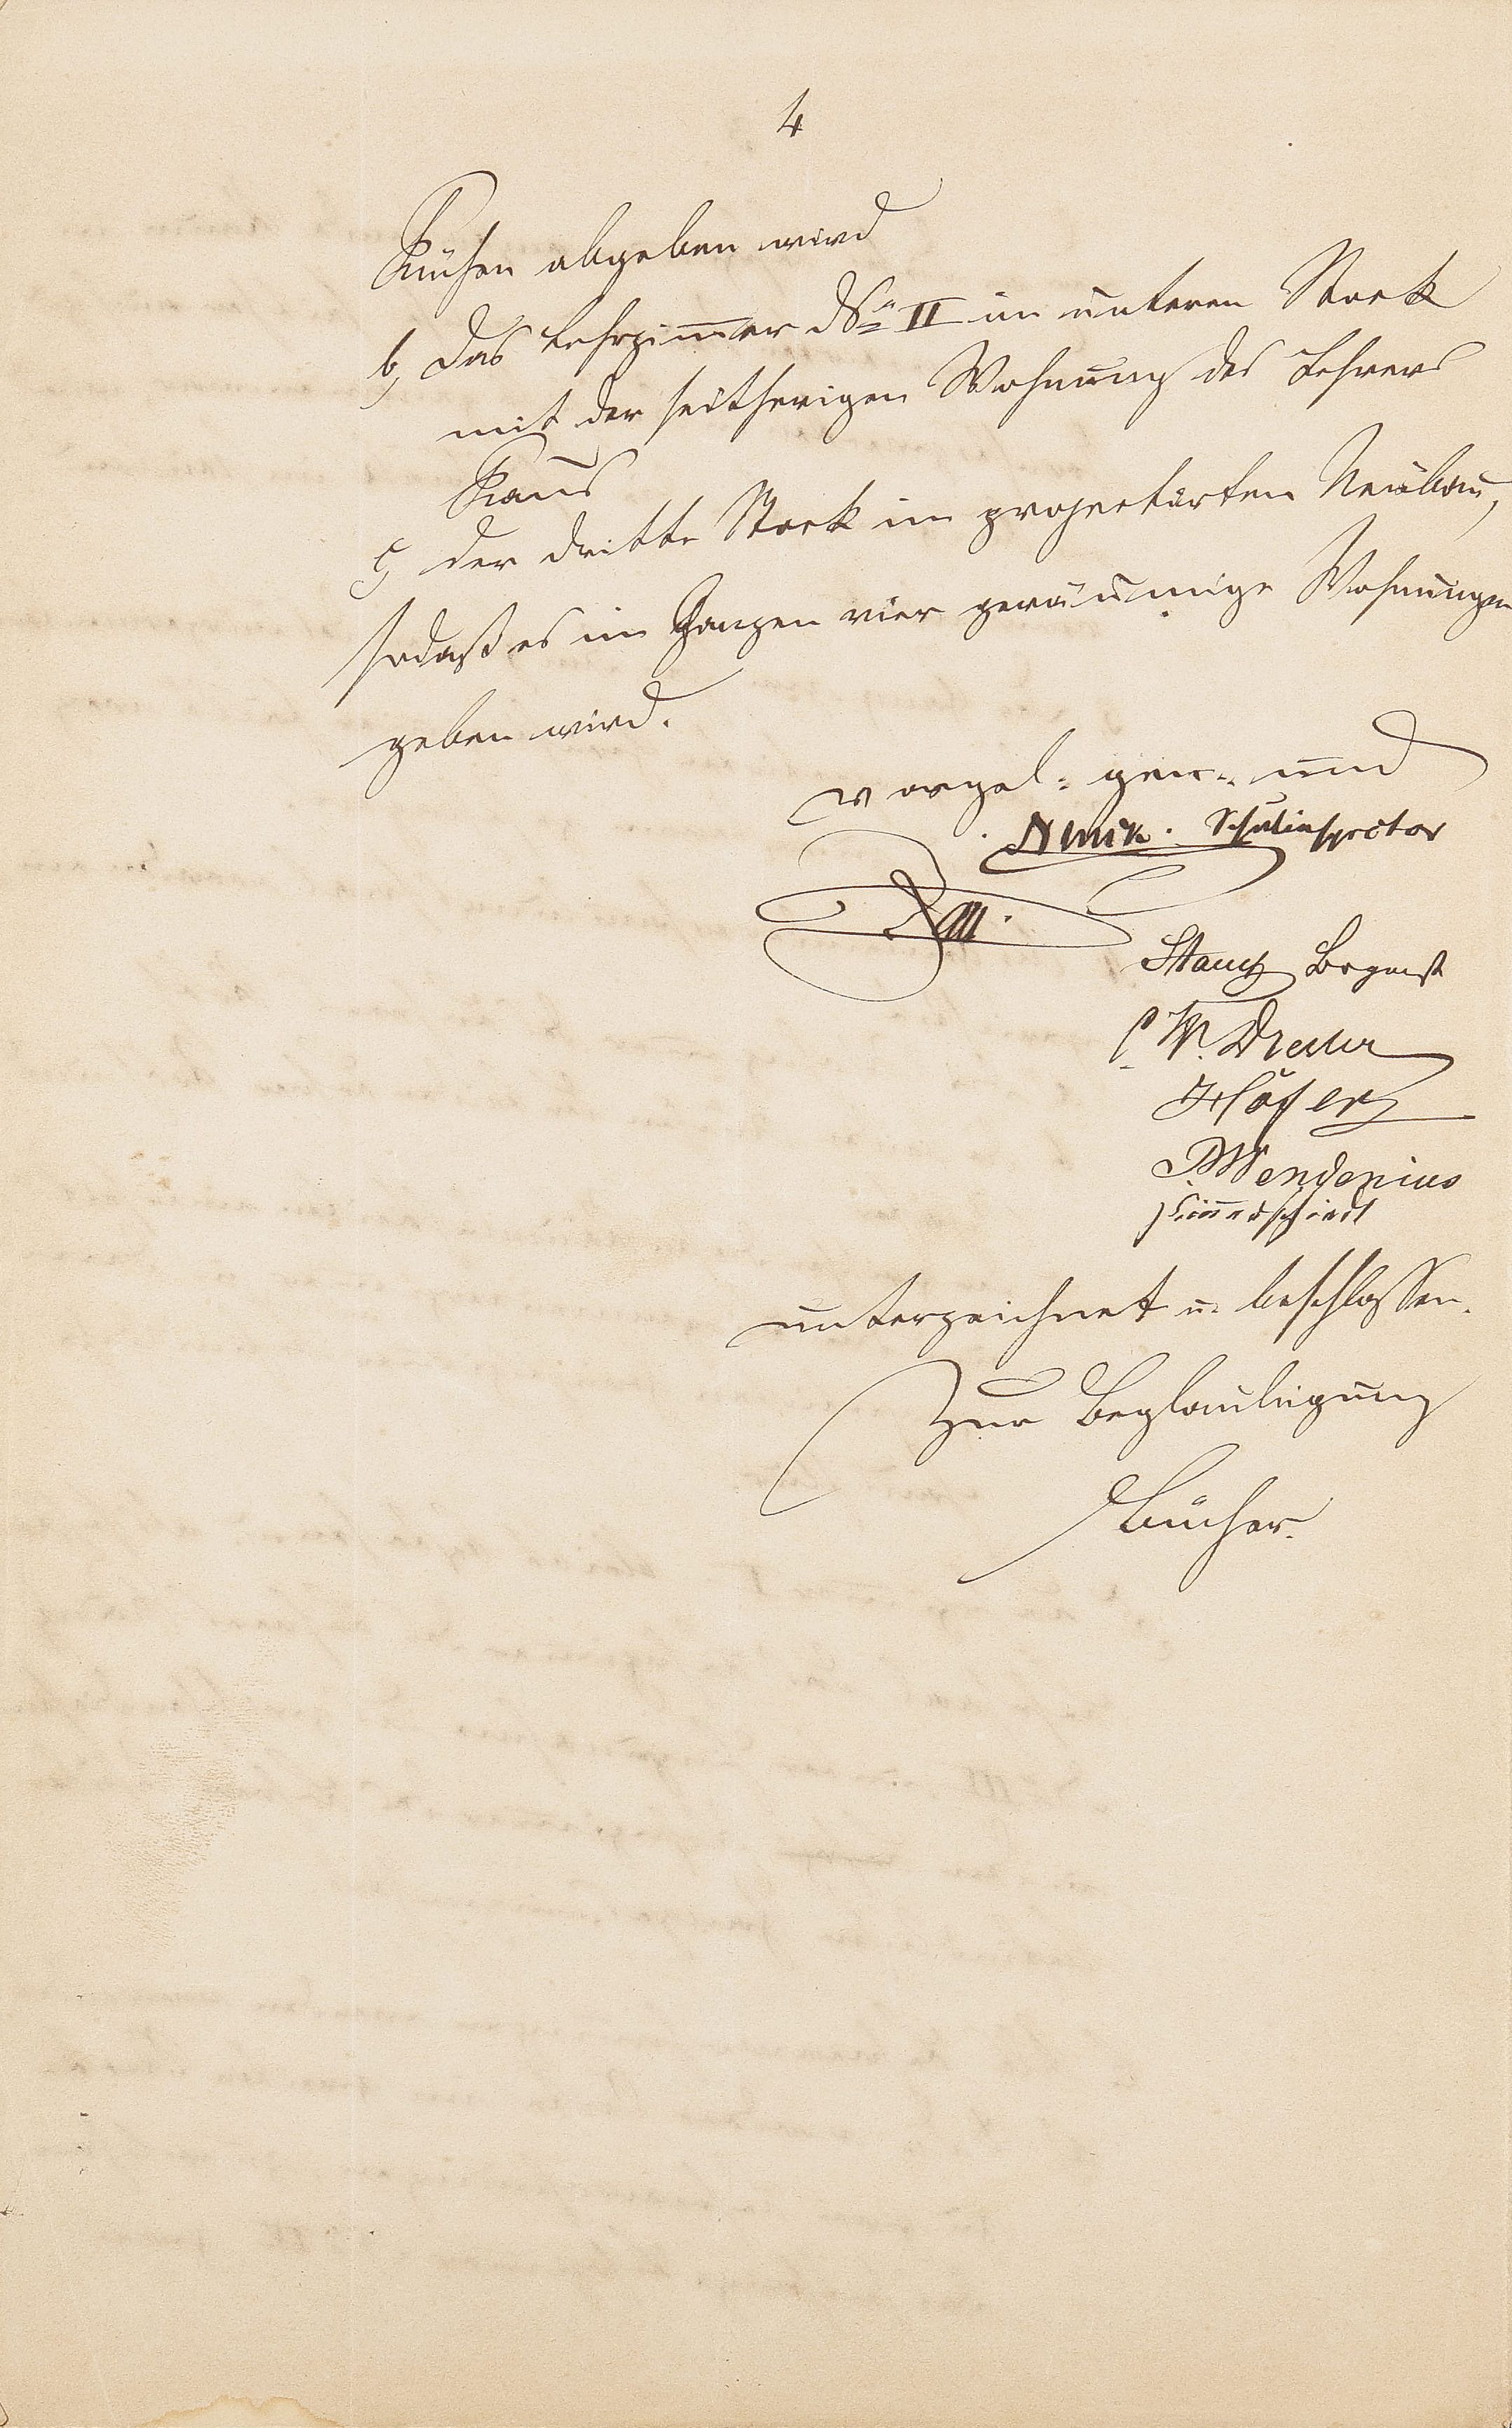 4
Küchen abgeben wird
b, das Lehrzimmer No II im unteren Stock
mit der seitherigen Wohnung des Lehrers
Kaus
c, der dritte Stock im projectirten Neubau,
sodaß es im Ganzen vier geräumige Wohnungen
geben wird.
vorgel: gen: und
Schulinspector
Stauch
W.
Höfer
Wendenius
unterzeichnet u. beschlossen.
Zur Beglaubigung
Bücher.